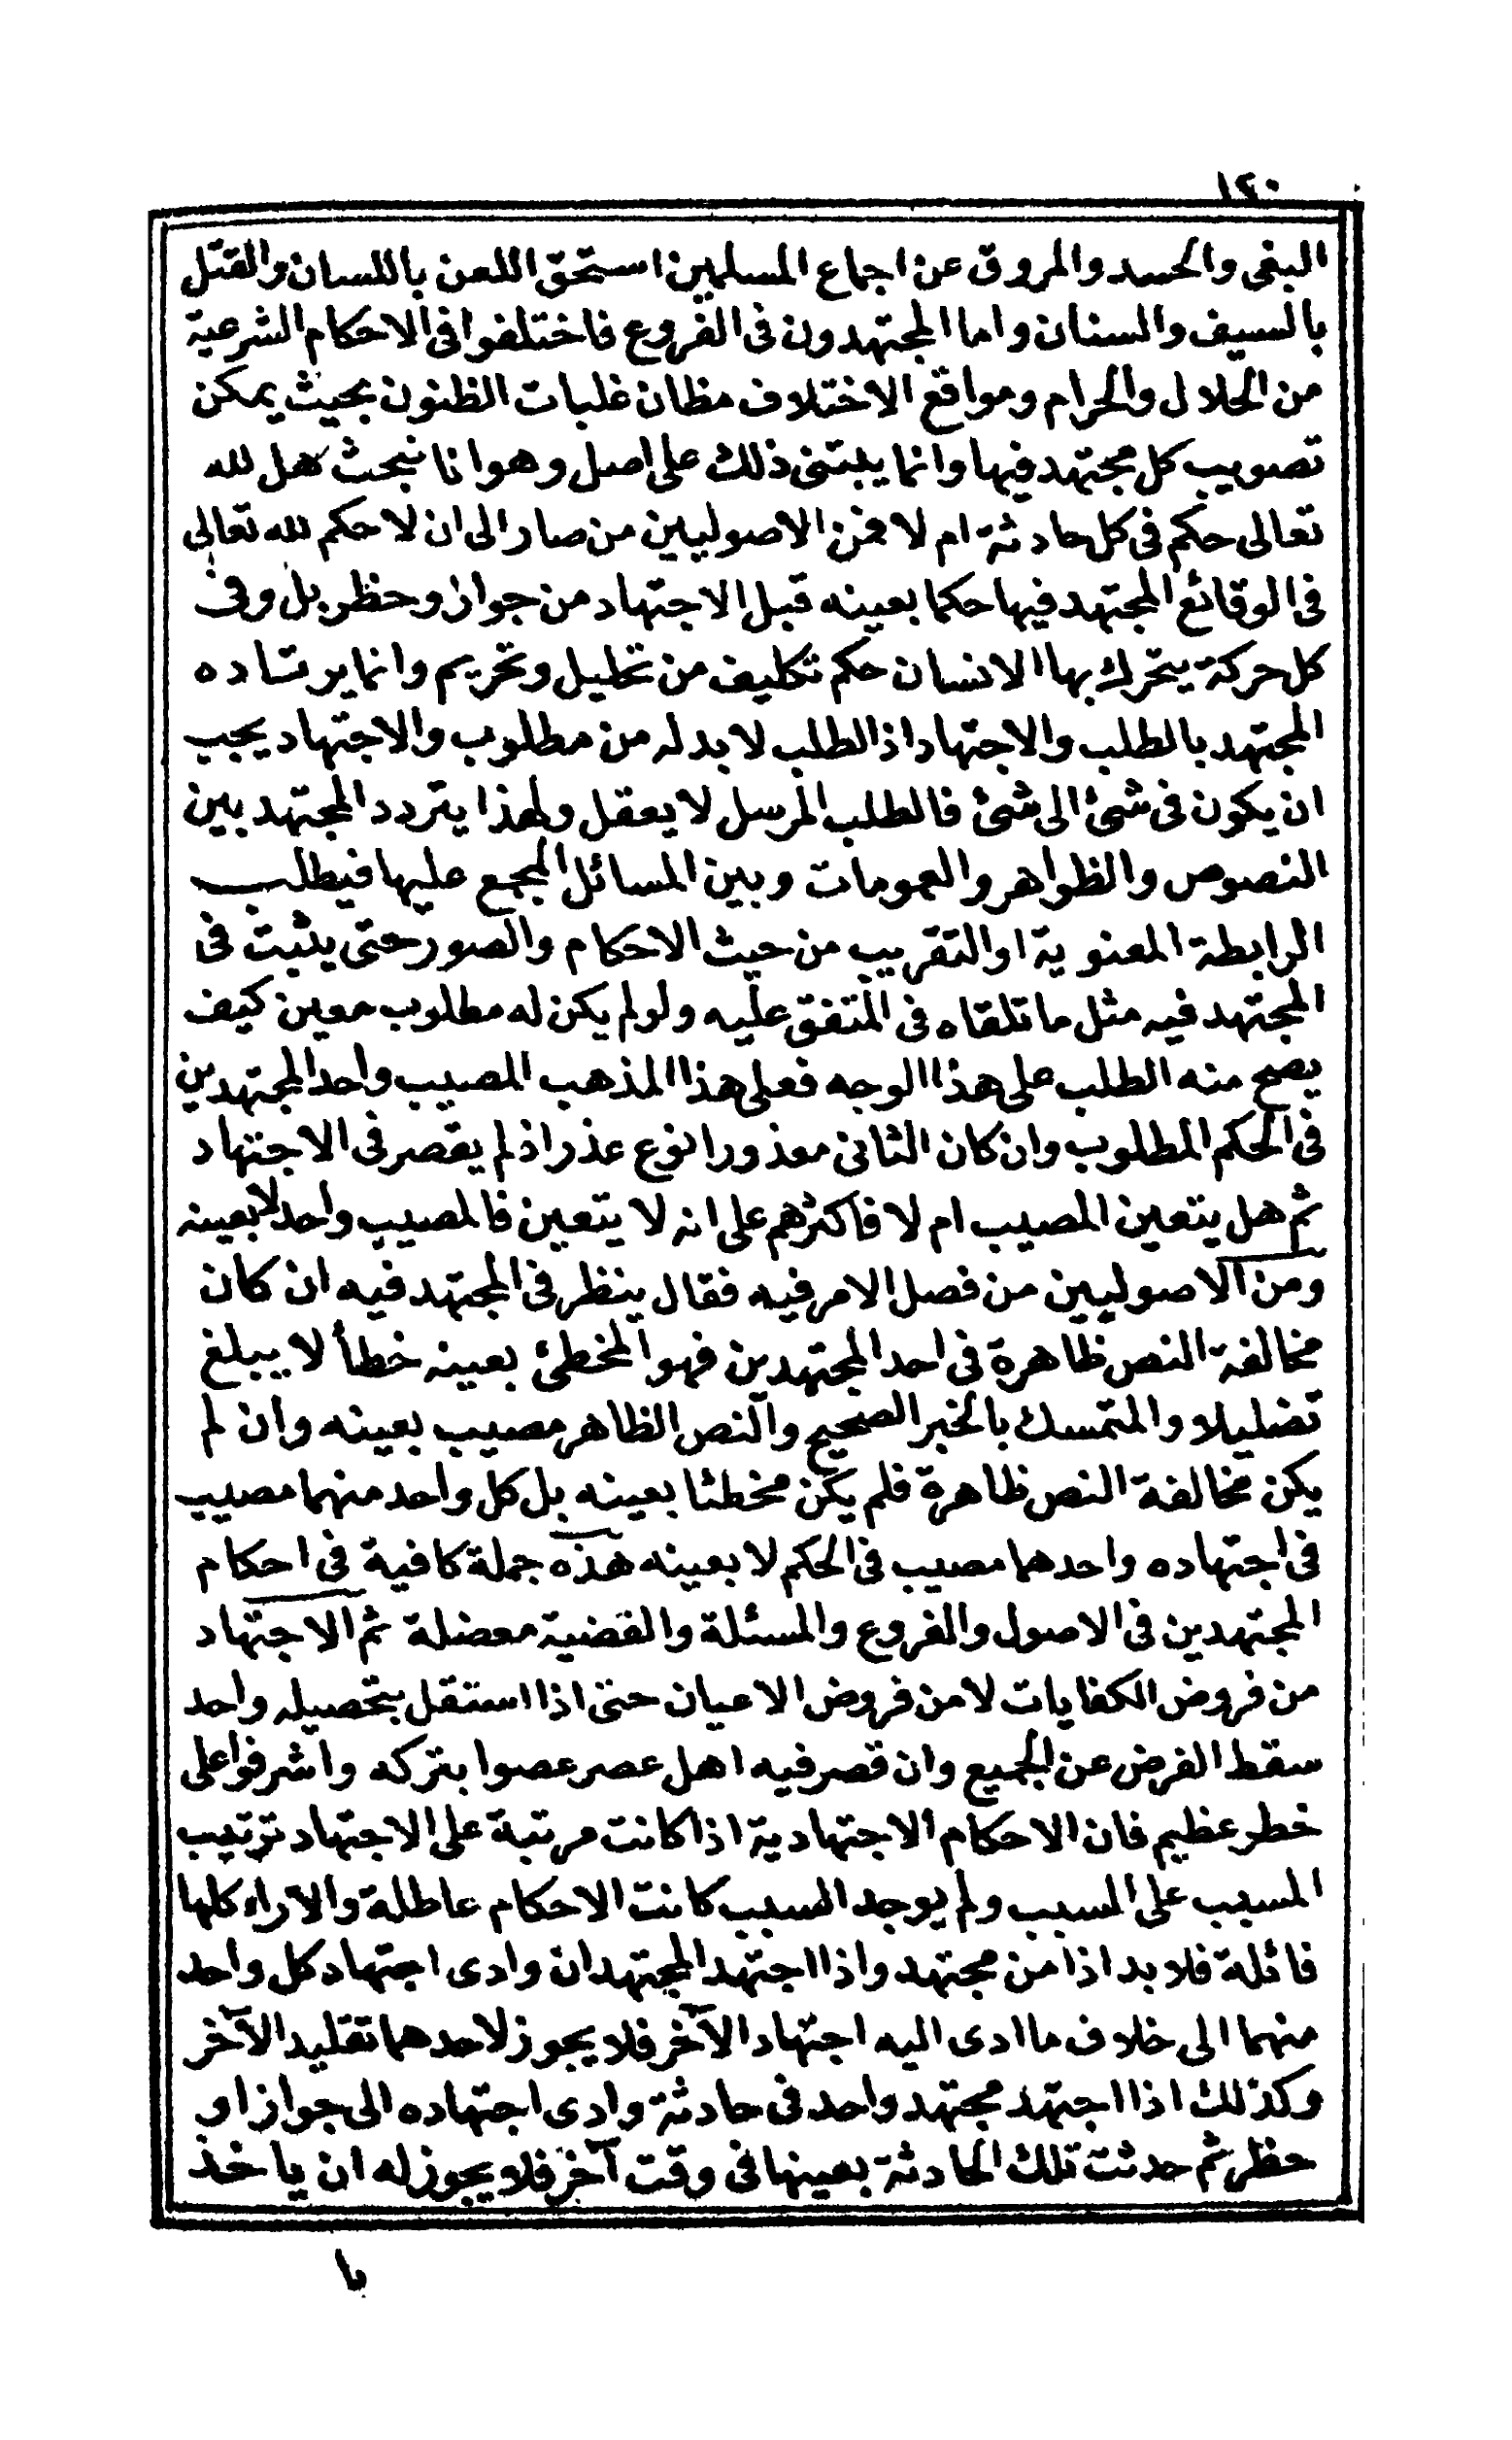 ١٢٠
البغى والحسد والمروق عن اجماع المسلمين استحق اللعن باللسان والقتل
بالسيف والسنان واما المجتهدون فى الفروع فاختلفوا فى الاحكام الشرعية
من الحلال والحرام ومواقع الاختلاف مظان غلبات الظنون بحيث يمكن
تصويب كل مجتهد فيها وانما يبتنى ذلك على اصل وهو انا نبحث هل لله
تعالى حكم فى كل حادثة ام لا فمن الاصوليين من صار الى ان لا حكم لله تعالى
فى الوقائع المجتهد فيها حكما بعينه قبل الاجتهاد من جواز وحظر بل وفى
كل حركة يتحرك بها الانسان حكم تكليف من تحليل وتحريم وانما يرتاده
المجتهد بالطلب والاجتهاد اذ الطلب لا بد له من مطلوب والاجتهاد يجب
ان يكون فى شئ الى شئ فالطلب المرسل لا يعقل ولهذا يتردد المجتهد بين
النصوص والظواهر والعمومات وبين المسائل المجمع عليها فيطلب
الرابطة المعنوية او التقريب من حيث الاحكام والصور حتى يثبت فى
المجتهد فيه مثل ما تلقاه فى المتفق عليه ولو لم يكن له مطلوب معين كيف
يصح منه الطلب على هذا الوجه فعلى هذا المذهب المصيب واحد المجتهدين
فى الحكم المطلوب وان كان الثانى معذورا نوع عذر اذ لم يقصر فى الاجتهاد
ثم هل يتعين المصيب ام لا فاكثرهم على انه لا يتعين فالمصيب واحد لا بعينه
ومن الاصوليين من فصل الامر فيه فقال ينظر فى المجتهد فيه ان كان
مخالفة النص ظاهرة فى احد المجتهدين فهو المخطئ بعينه خطأ لا يبلغ
تضليلا والمتمسك بالخبر الصحيح والنص الظاهر مصيب بعينه وان لم
يكن مخالفة النص ظاهرة فلم يكن مخطئا بعينه بل كل واحد منهما مصيب
فى اجتهاده واحدهما مصيب فى الحكم لا بعينه هذه جملة كافية فى احكام
المجتهدين فى الاصول والفروع والمسئلة والقضية معضلة ثم الاجتهاد
من فروض الكفايات لا من فروض الاعيان حتى اذا استقل بتحصيله واحد
سقط الفرض عن الجميع وان قصر فيه اهل عصر عصوا بتركه واشرفوا على
خطر عظيم فان الاحكام الاجتهادية اذا كانت مرتبة على الاجتهاد ترتيب
المسبب على السبب ولم يوجد السبب كانت الاحكام عاطلة والآراء كلها
فائلة فلا بد اذا من مجتهد واذا اجتهد المجتهدان وادى اجتهاد كل واحد
منهما الى خلاف ما ادى اليه اجتهاد الآخر فلا يجوز لاحدهما تقليد الآخر
وكذلك اذا اجتهد مجتهد واحد فى حادثة وادى اجتهاده الى جواز او
حظر ثم حدثت تلك الحادثة بعينها فى وقت آخر فلا يجوز له ان ياخذ